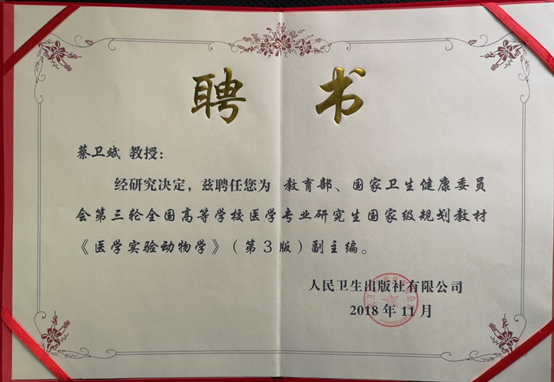 聘书
蔡卫斌 教授：
经研究决定，兹聘任您为 教育部、国家卫生健康委员
会第三轮全国高等学校医学专业研究生国家级规划教材
《医学实验动物学》（第3版）副主编。
人民卫生出版社有限公司
2018年11月